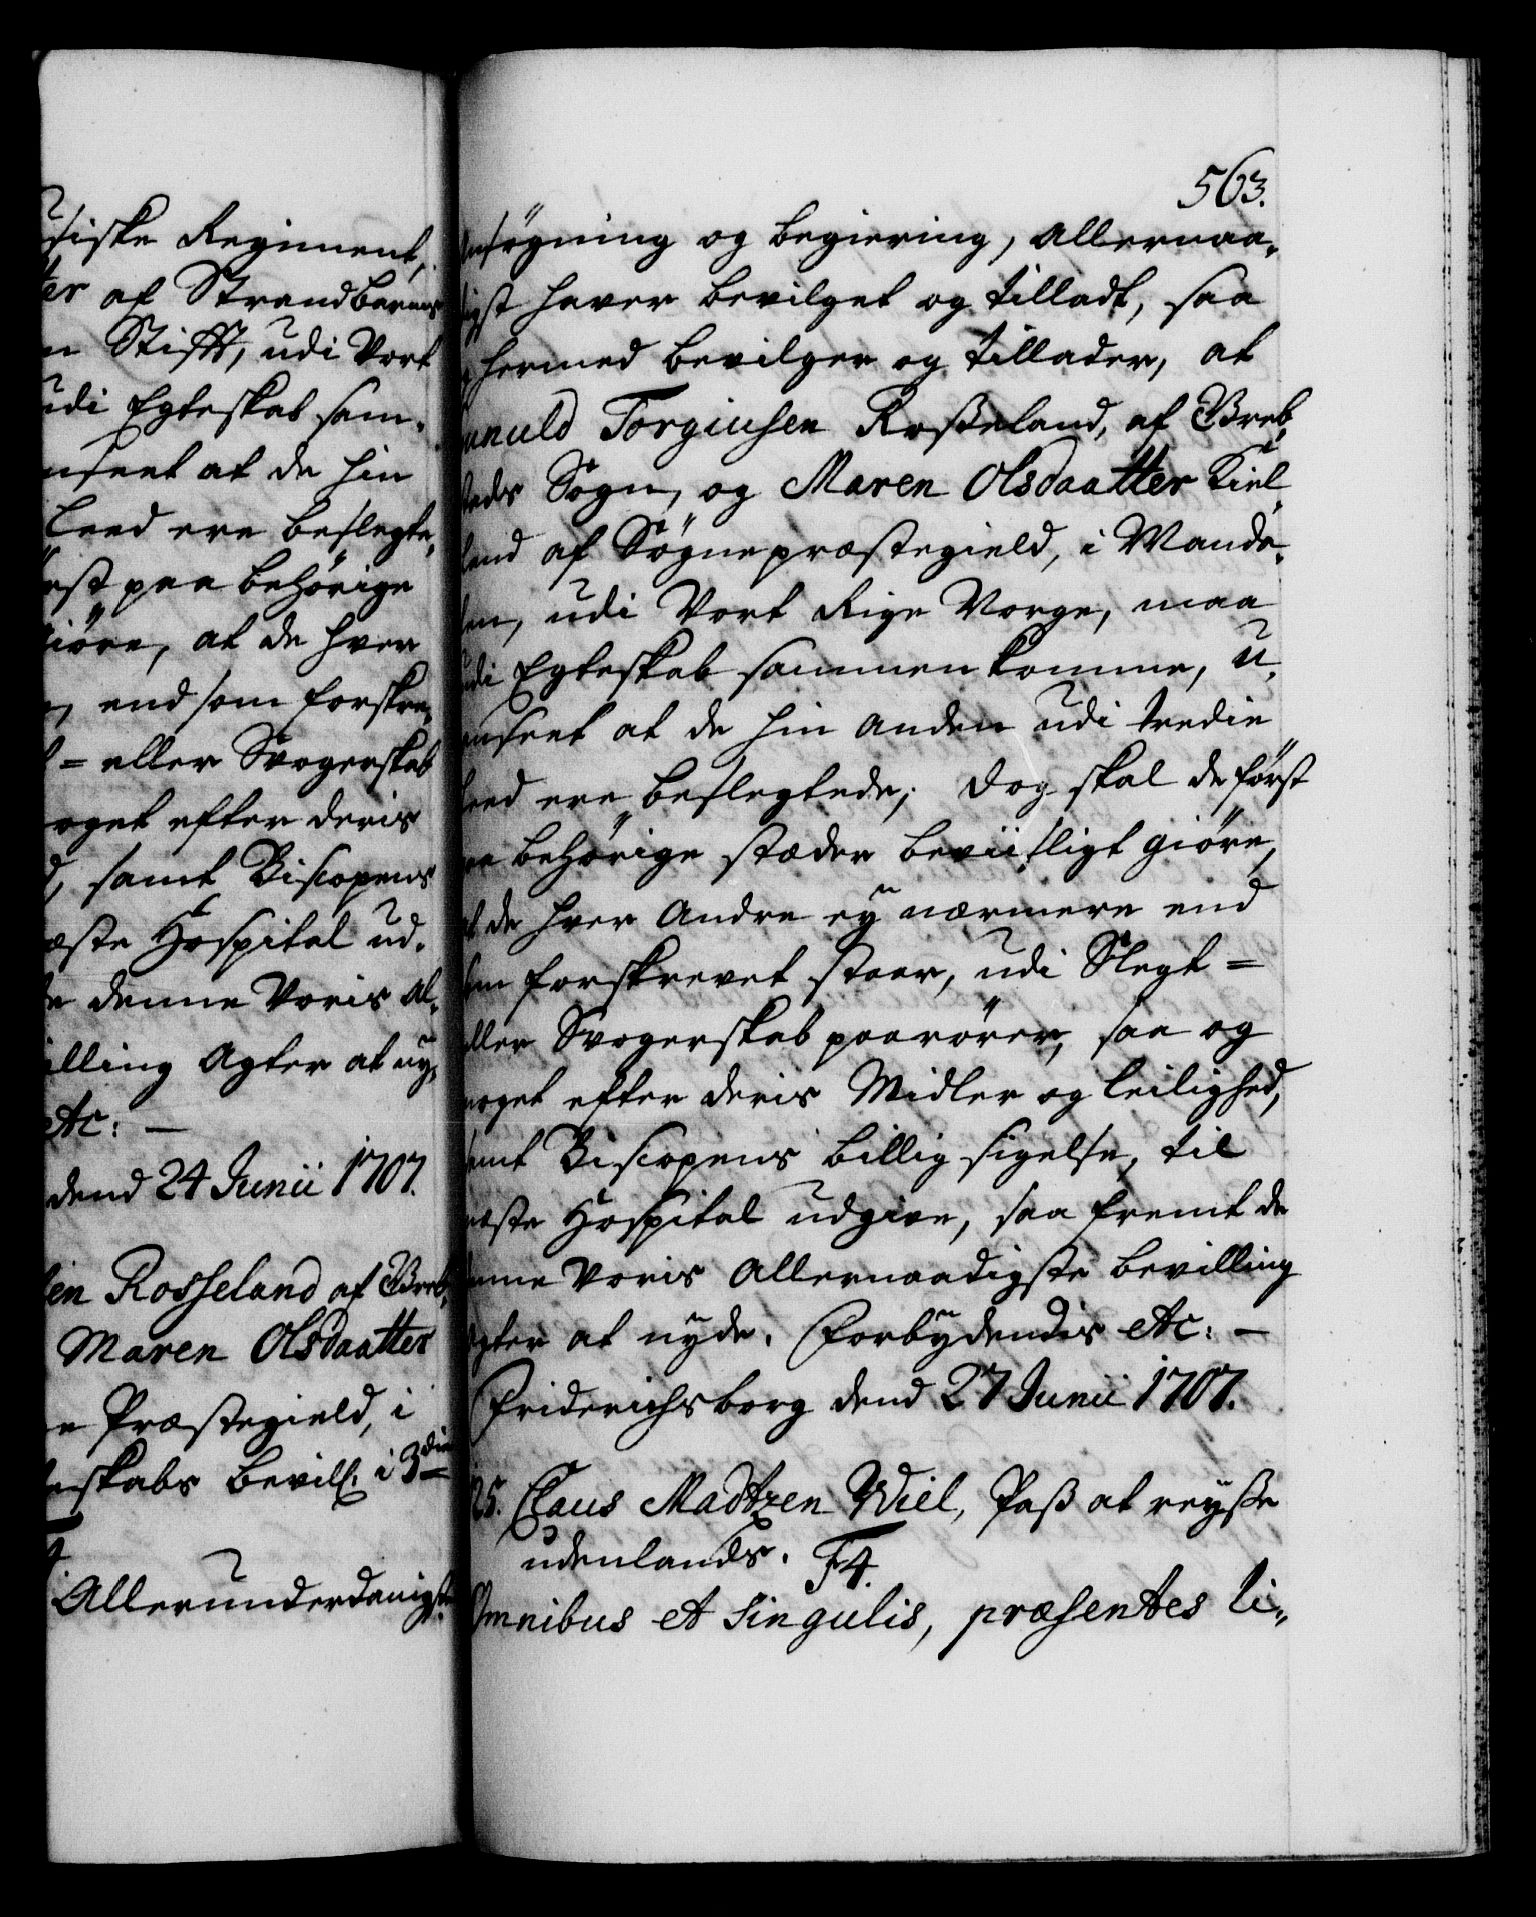 siske Regiment,
ter af Strandbarms
n Stifft, udi Vort
udi Egteskab sam„
anseet at de hin
Leed ere beslegte„
rst paa behörige
giöre, at de hver
, end som forskre„
t= eller Svogerskab
noget efter deris
d, samt Biscopens
næste Hospital ud„
de denne Voris Al„
villing Agter at ny„
etc: —
dend 24 Junii 1707.
sen Rosseland af Breb„
Maren Olsdaatter
ne Præstegield, i
teskabs bevill: i 3die
Allerunderdanigst
563.
Ansögning og begiering, Allernaa„
digst haver bevilget og tilladt, saa
og hermed bevilger og tillader, at
Gunuld Torgiusen Roßeland, af Breb„
steds Sogn, og Maren Olsdaatter Kiel„
land af Sögne præstegield, i Manda„
len, udi Vort Rige Norge, maa
udi Egteskab sammenkomme, u„
anseet at de hin anden udi tredie
Leed ere beslegtede; Dog skal de först
paa behörige stæder beviisligt giöre,
at de hver Andre ey nærmere end
som forskrevet staar, udi Slegt=
eller Svogerskab paarörer, saa og
noget efter deris Midler og leilighed,
samt Biscopens billig sigelse, til
næste Hospital udgive, saa fremt de
denne Voris Allernaadigste bevilling
agter at nyde. Forbydendis etc: —
Friderichsborg dend 27 Junii 1707.
125. Claus Madtzen Wiel, Paß at reyße
udenlands. F4.
Omnibus et Singulis, præsentes li„